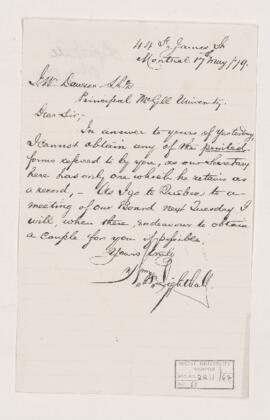 44 St. James St
Montreal 17th May/79.
J.W. Dawson
Principal McGill University.
Dear Sir,-
In answer to yours of yesterday,
I cannot obtain any of the printed
forms referred to by you, as our Secretary
here has only one which he retains as
a record,- As I go to Quebec to a
meeting of our Board next Tuesday I
will when there, endeavour to obtain
a couple for you if possible.
Yours truly
Wm. F. Lighthall
McGILL UNIVERSITY
ARCHIVES
ACC. NO. 2211/62